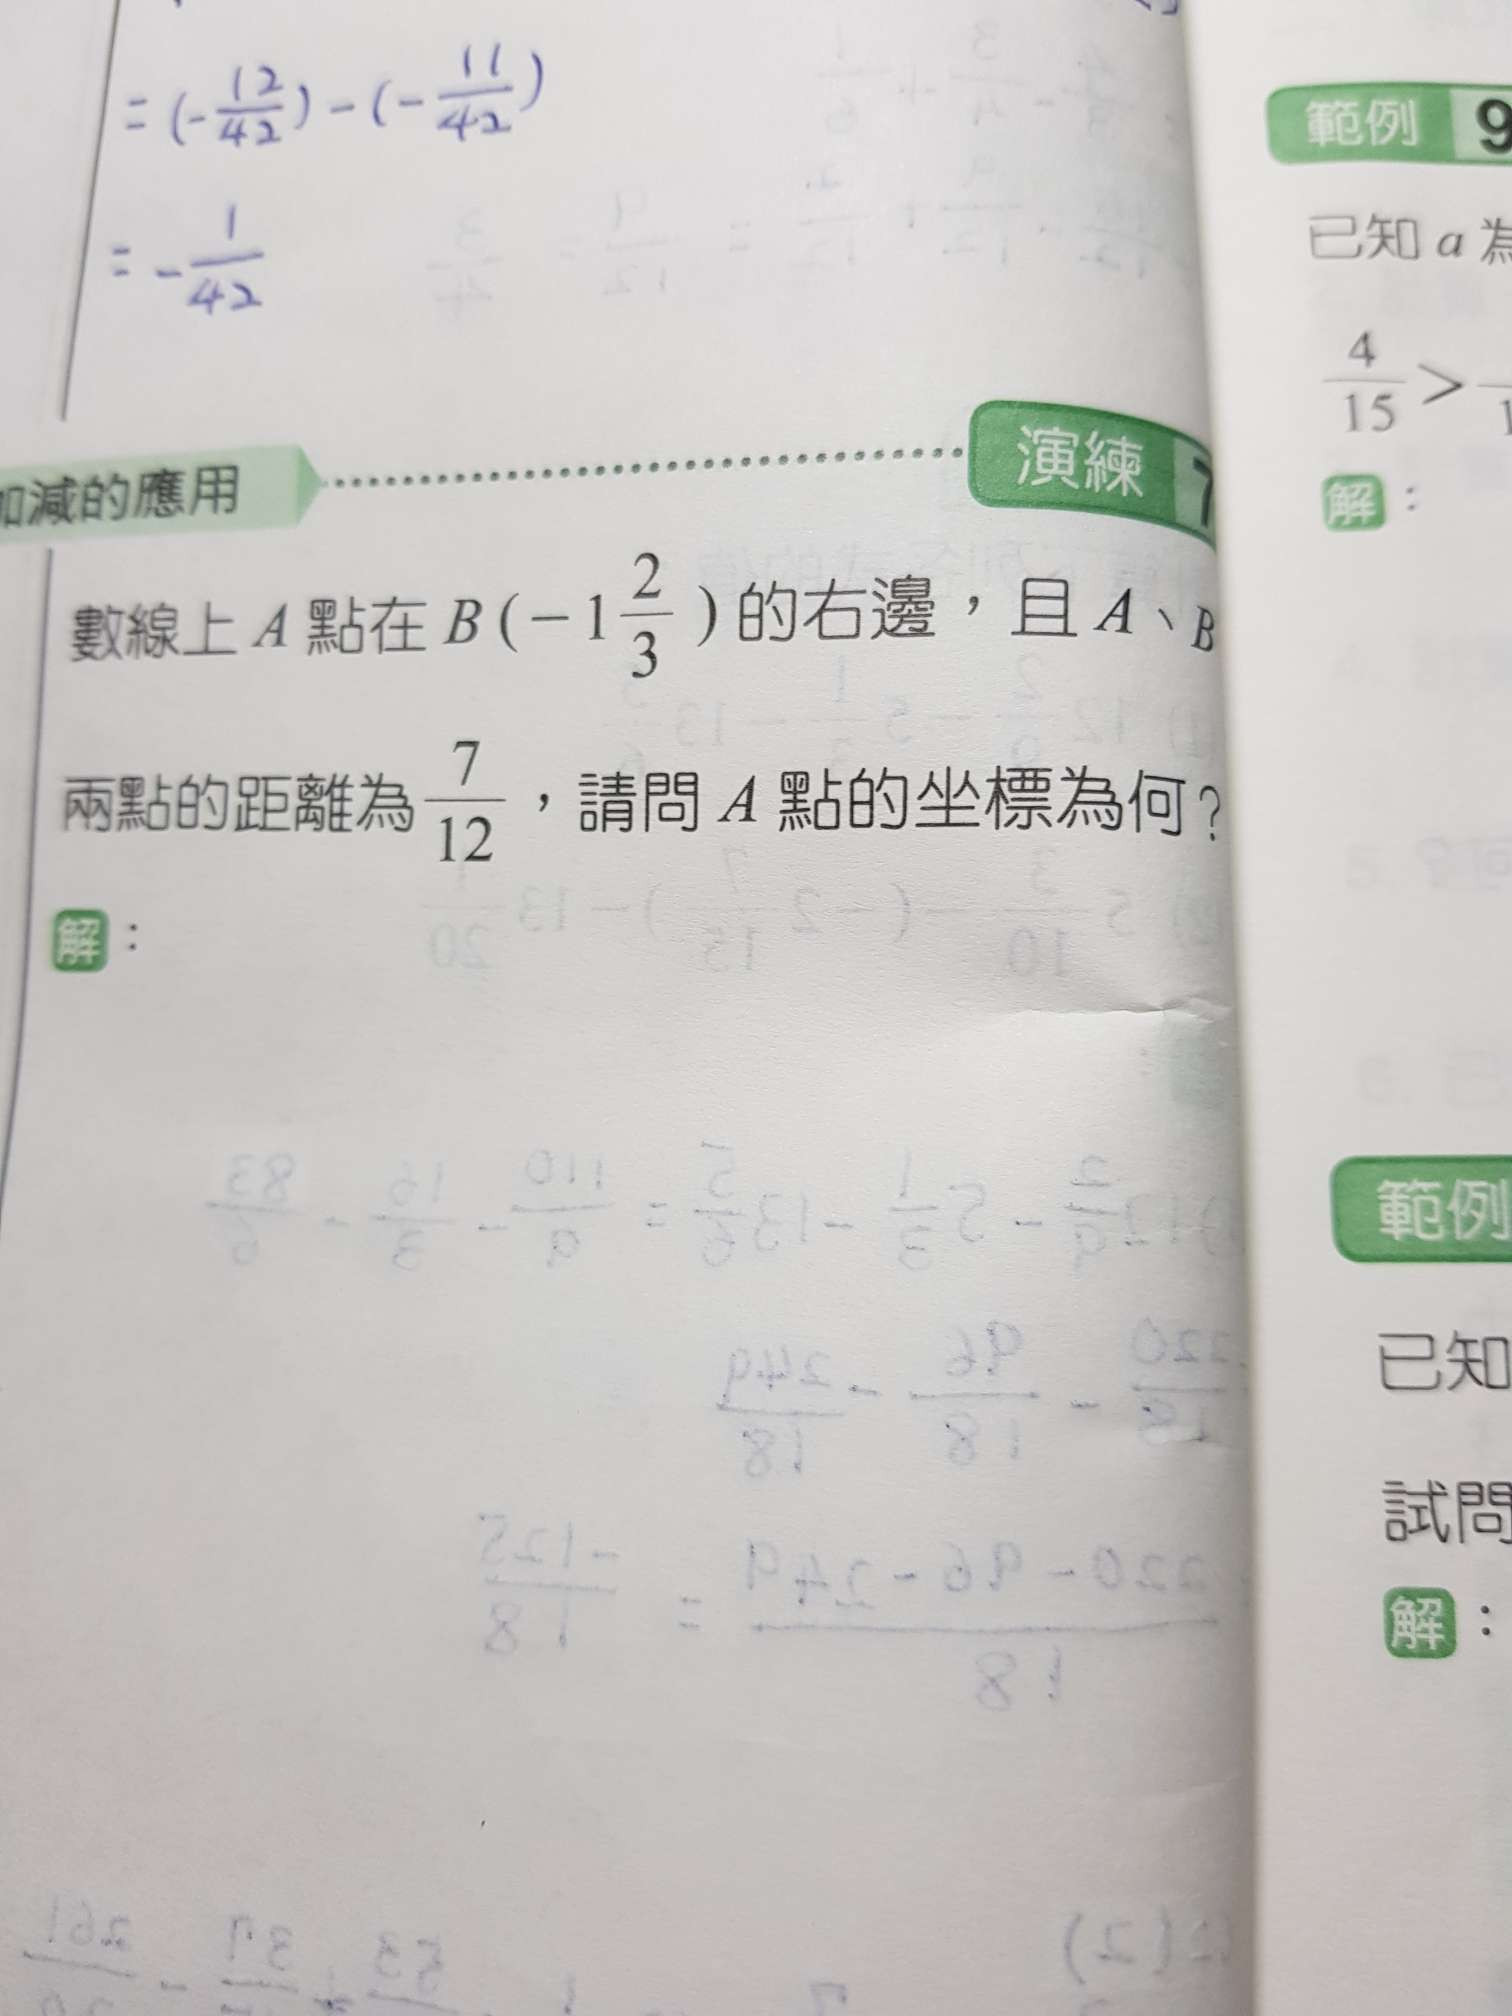 = (-12/42) - (-11/42)
= -1/42
加減的應用
演練 7
數線上 A 點在 B(-1 2/3)的右邊，且 A、B
兩點的距離為 7/12，請問 A 點的坐標為何？
解：
範例 9
已知 a 為
4/15 >
解：
範例
已知
試問
解：